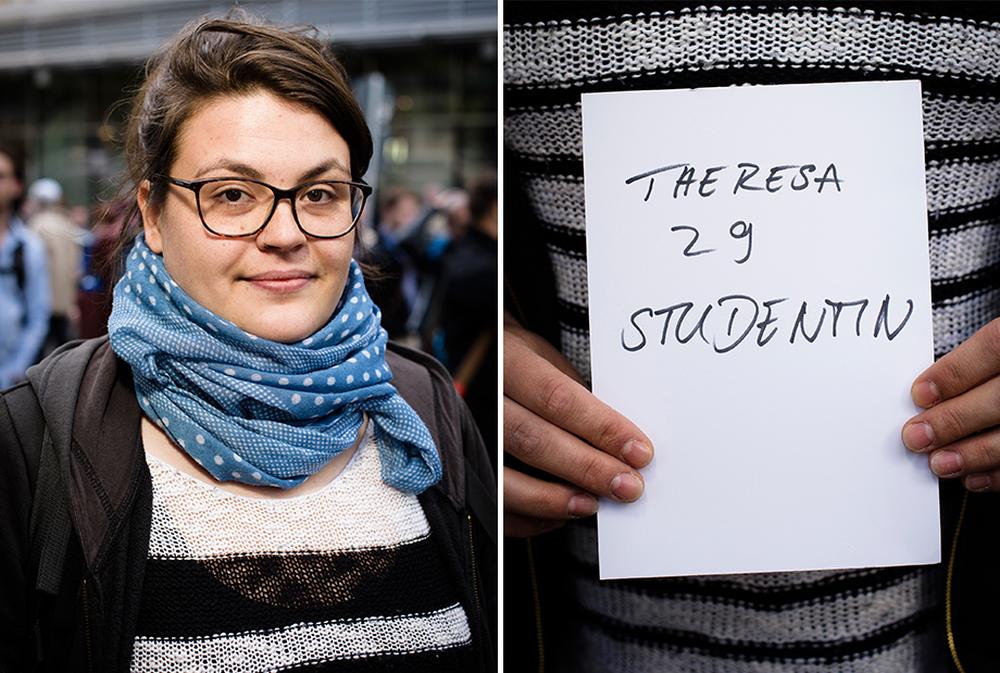 THERESA
29
STUDENTIN